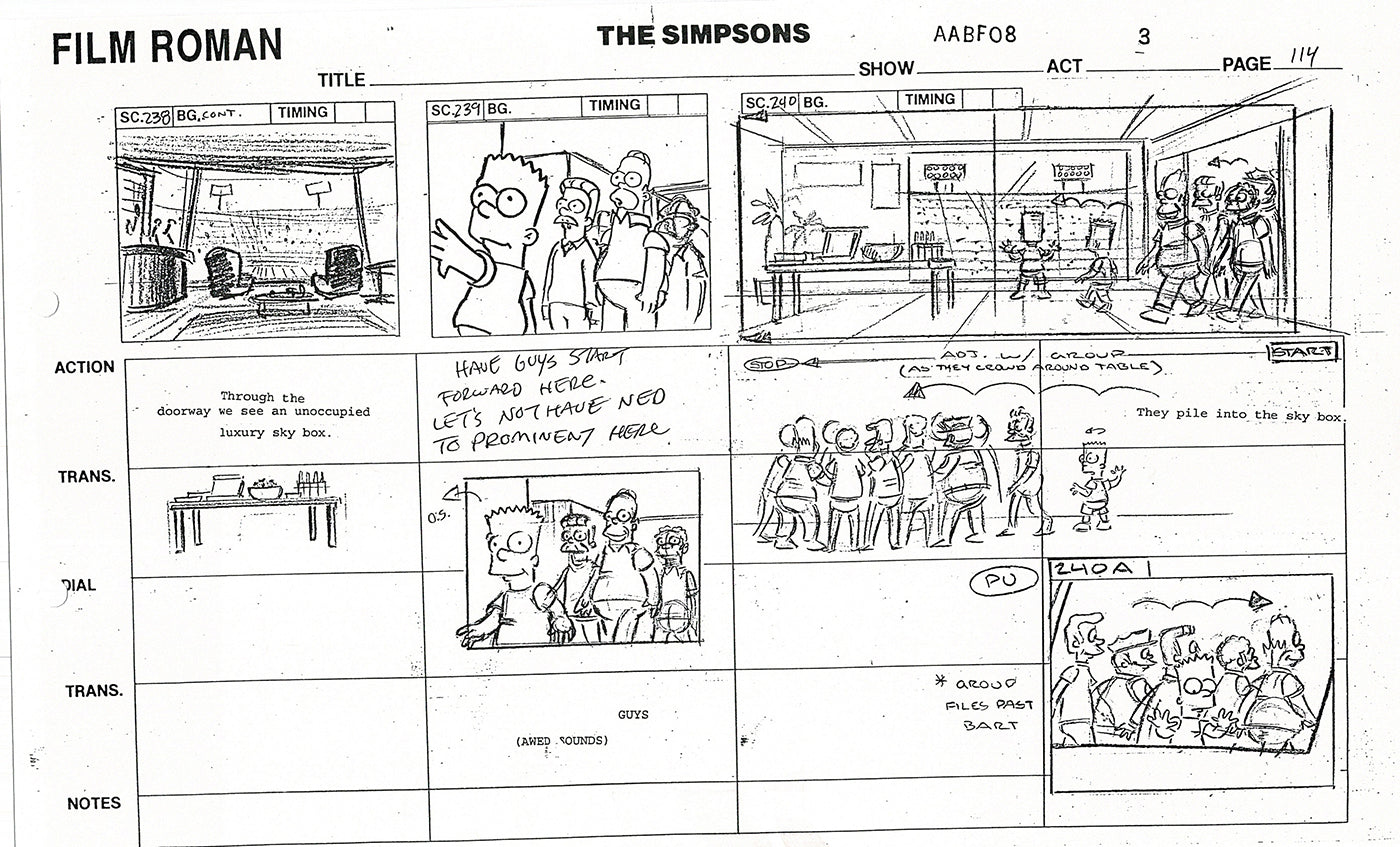 FILM ROMAN
THE SIMPSONS
AABF08
3
114
TITLE
SHOW
ACT
PAGE
SC. 238 BG. CONT. TIMING
SC. 239 BG. TIMING
SC. 240 BG. TIMING
ACTION
Through the
doorway we see an unoccupied
luxury sky box.
HAVE GUYS START
FORWARD HERE.
LET'S NOT HAVE NED
TO PROMINENT HERE
STOP
ADJ. W/ GROUP
START
(AS THEY CROWD AROUND TABLE)
They pile into the sky box.
TRANS.
O.S.
DIAL
PU
240A
TRANS.
GUYS
(AWED SOUNDS)
* GROUP
FILES PAST
BART
NOTES